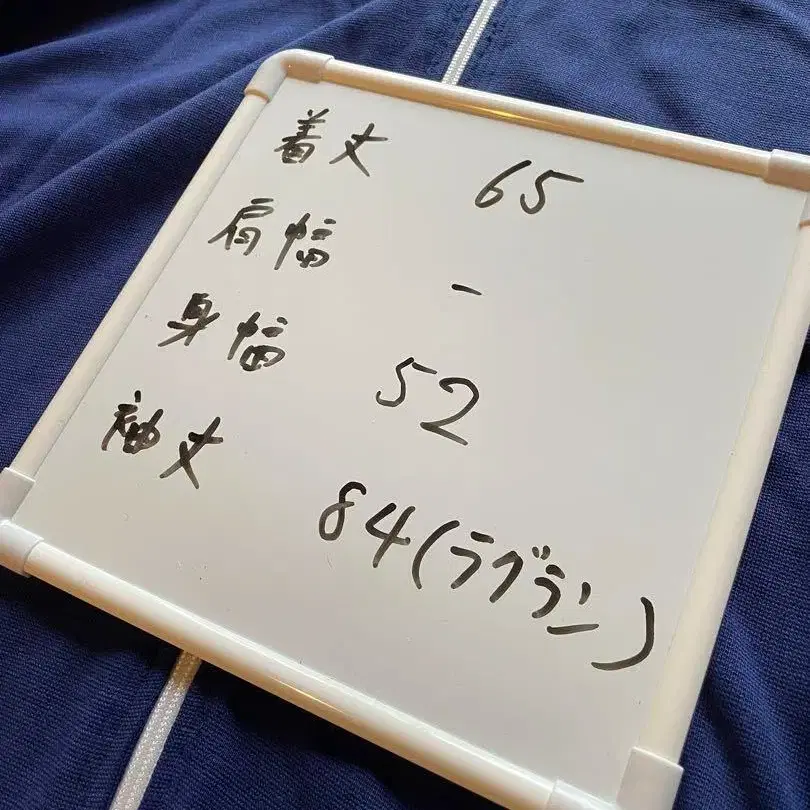 着丈 65
肩幅 -
身幅 52
袖丈 84(ラグラン)